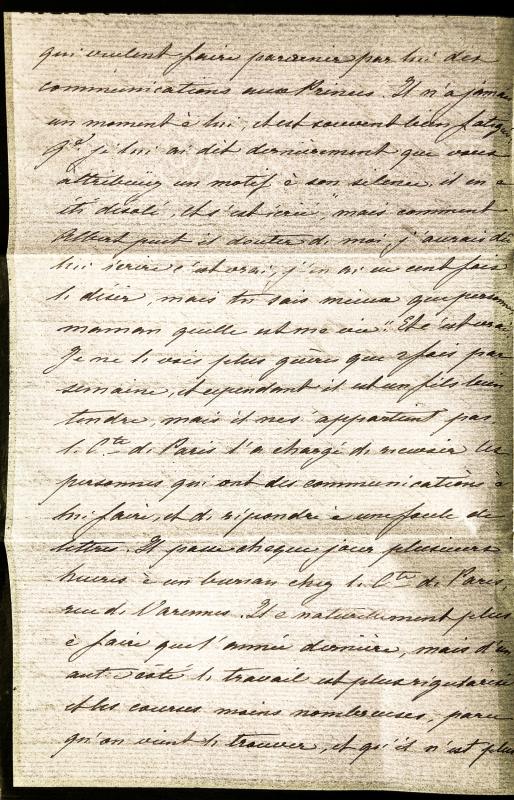 qui veulent faire parvenir par lui des
communications aux Princes. Il n'a jamais
un moment à lui, et est souvent bien fatigué
Qd je lui ai dit dernièrement que vous
attribuiez un motif à son silence, il en a
été désolé, et s'est écrié "mais comment
Albert peut il douter de moi, j'aurais dû
lui écrire c'est vrai, j'en ai eu cent fois
le désir, mais tu sais mieux que personne
maman quelle est ma vie". Et c'est vrai
Je ne le vois plus guères que 2 fois par
semaine, et cependant il est un fils bien
tendre, mais il ne s'appartient pas.
le Cte de Paris l'a chargé de recevoir les
personnes qui ont des communications à
lui faire, et de répondre à une foule de
lettres. Il passe chaque jour plusieurs
heures à un bureau chez le Cte de Paris
rue de Varennes. Il a naturellement plus
à faire que l'année dernière, mais d'un
autre côté le travail est plus régularisé
et les courses moins nombreuses, parce
qu'on vient le trouver, et qu'il n'est plus